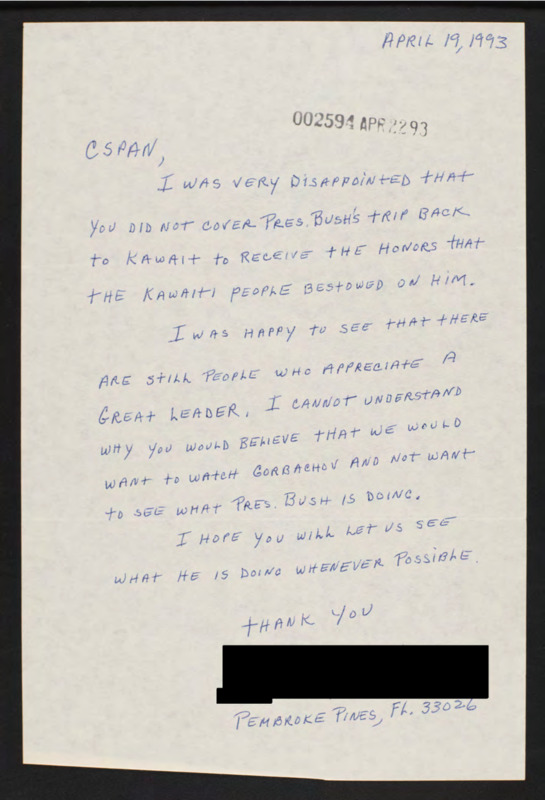 APRIL 19, 1993
002594 APR 22 93
CSPAN,
I WAS VERY DISAPPOINTED THAT
YOU DID NOT COVER PRES. BUSH'S TRIP BACK
TO KAWAIT TO RECEIVE THE HONORS THAT
THE KAWAITI PEOPLE BESTOWED ON HIM.
I WAS HAPPY TO SEE THAT THERE
ARE STILL PEOPLE WHO APPRECIATE A
GREAT LEADER. I CANNOT UNDERSTAND
WHY YOU WOULD BELIEVE THAT WE WOULD
WANT TO WATCH GORBACHOV AND NOT WANT
TO SEE WHAT PRES. BUSH IS DOING.
I HOPE YOU WILL LET US SEE
WHAT HE IS DOING WHENEVER POSSIBLE.
THANK YOU
PEMBROKE PINES, FL. 33026